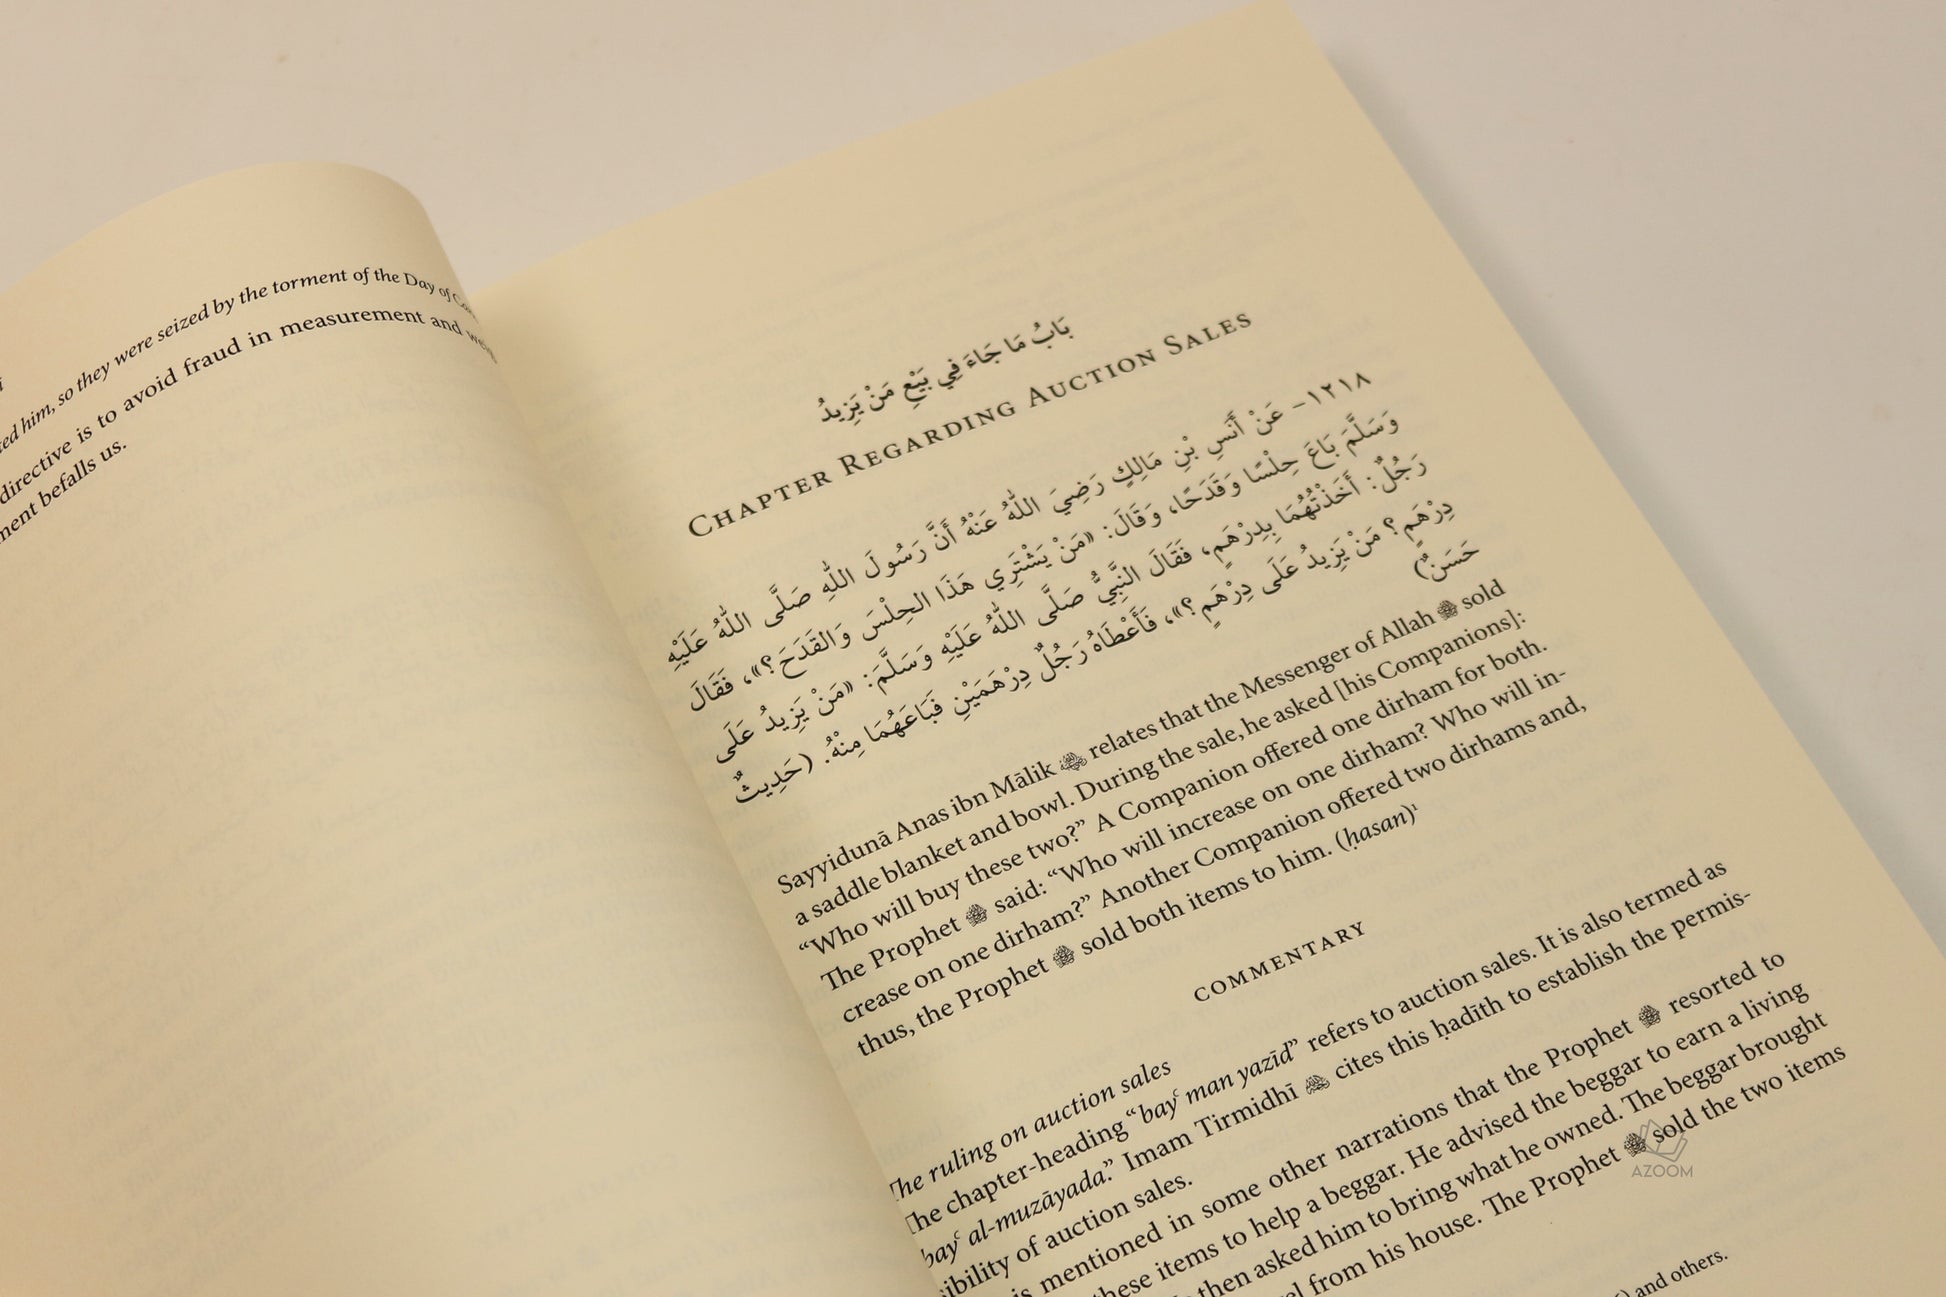 ted him, so they were seized by the torment of the Day of
directive is to avoid fraud in measurement and
ment befalls us.
بَابُ مَا جَاءَ فِي بَيْعِ مَنْ يَزِيدُ
CHAPTER REGARDING AUCTION SALES
١٢١٨- عَنْ أَنَسِ بْنِ مَالِكٍ رَضِيَ اللهُ عَنْهُ أَنَّ رَسُولَ اللهِ صَلَّى اللهُ عَلَيْهِ
وَسَلَّمَ بَاعَ حِلْسًا وَقَدَحًا، وَقَالَ: «مَنْ يَشْتَرِي هَذَا الحِلْسَ وَالقَدَحَ؟»، فَقَالَ
رَجُلٌ: أَخَذْتُهُمَا بِدِرْهَمٍ، فَقَالَ النَّبِيُّ صَلَّى اللهُ عَلَيْهِ وَسَلَّمَ: «مَنْ يَزِيدُ عَلَى
دِرْهَمٍ؟ مَنْ يَزِيدُ عَلَى دِرْهَمٍ؟»، فَأَعْطَاهُ رَجُلٌ دِرْهَمَيْنِ فَبَاعَهُمَا مِنْهُ. (حَدِيثٌ
حَسَنٌ)
Sayyidunā Anas ibn Mālik relates that the Messenger of Allah ﷺ sold
a saddle blanket and bowl. During the sale, he asked [his Companions]:
“Who will buy these two?” A Companion offered one dirham for both.
The Prophet ﷺ said: “Who will increase on one dirham? Who will in-
crease on one dirham?” Another Companion offered two dirhams and,
thus, the Prophet ﷺ sold both items to him. (ḥasan)¹
COMMENTARY
The ruling on auction sales
The chapter-heading “bayʿ man yazīd” refers to auction sales. It is also termed as
bayʿ al-muzāyada.” Imam Tirmidhī cites this ḥadīth to establish the permis-
ibility of auction sales.
is mentioned in some other narrations that the Prophet ﷺ resorted to
these items to help a beggar. He advised the beggar to earn a living
then asked him to bring what he owned. The beggar brought
from his house. The Prophet ﷺ sold the two items
and others.
AZOOM